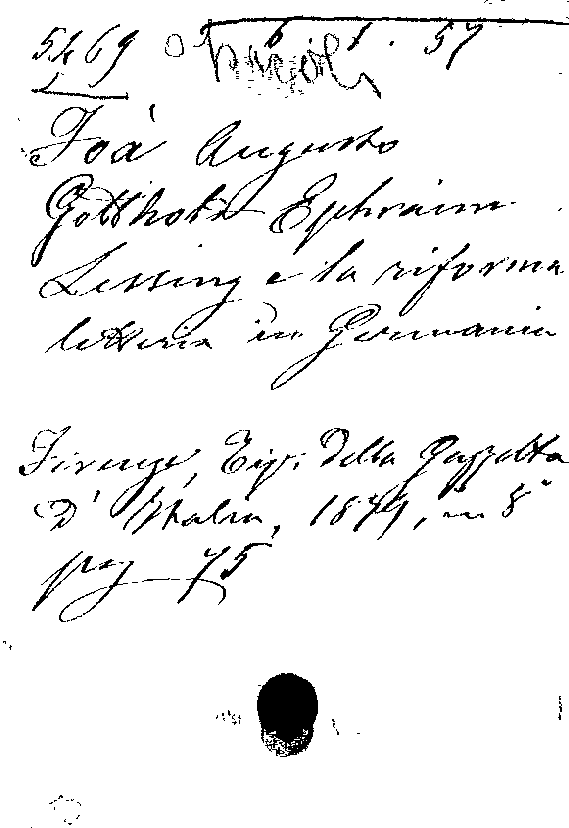 5469 6. 1. 57
Foà Augusto
Gotthold Ephraim
Lessing e la riforma
letteria in Germania
Firenze, Tip. della Gazzetta
D' Italia, 1879, in 8°
pag 75